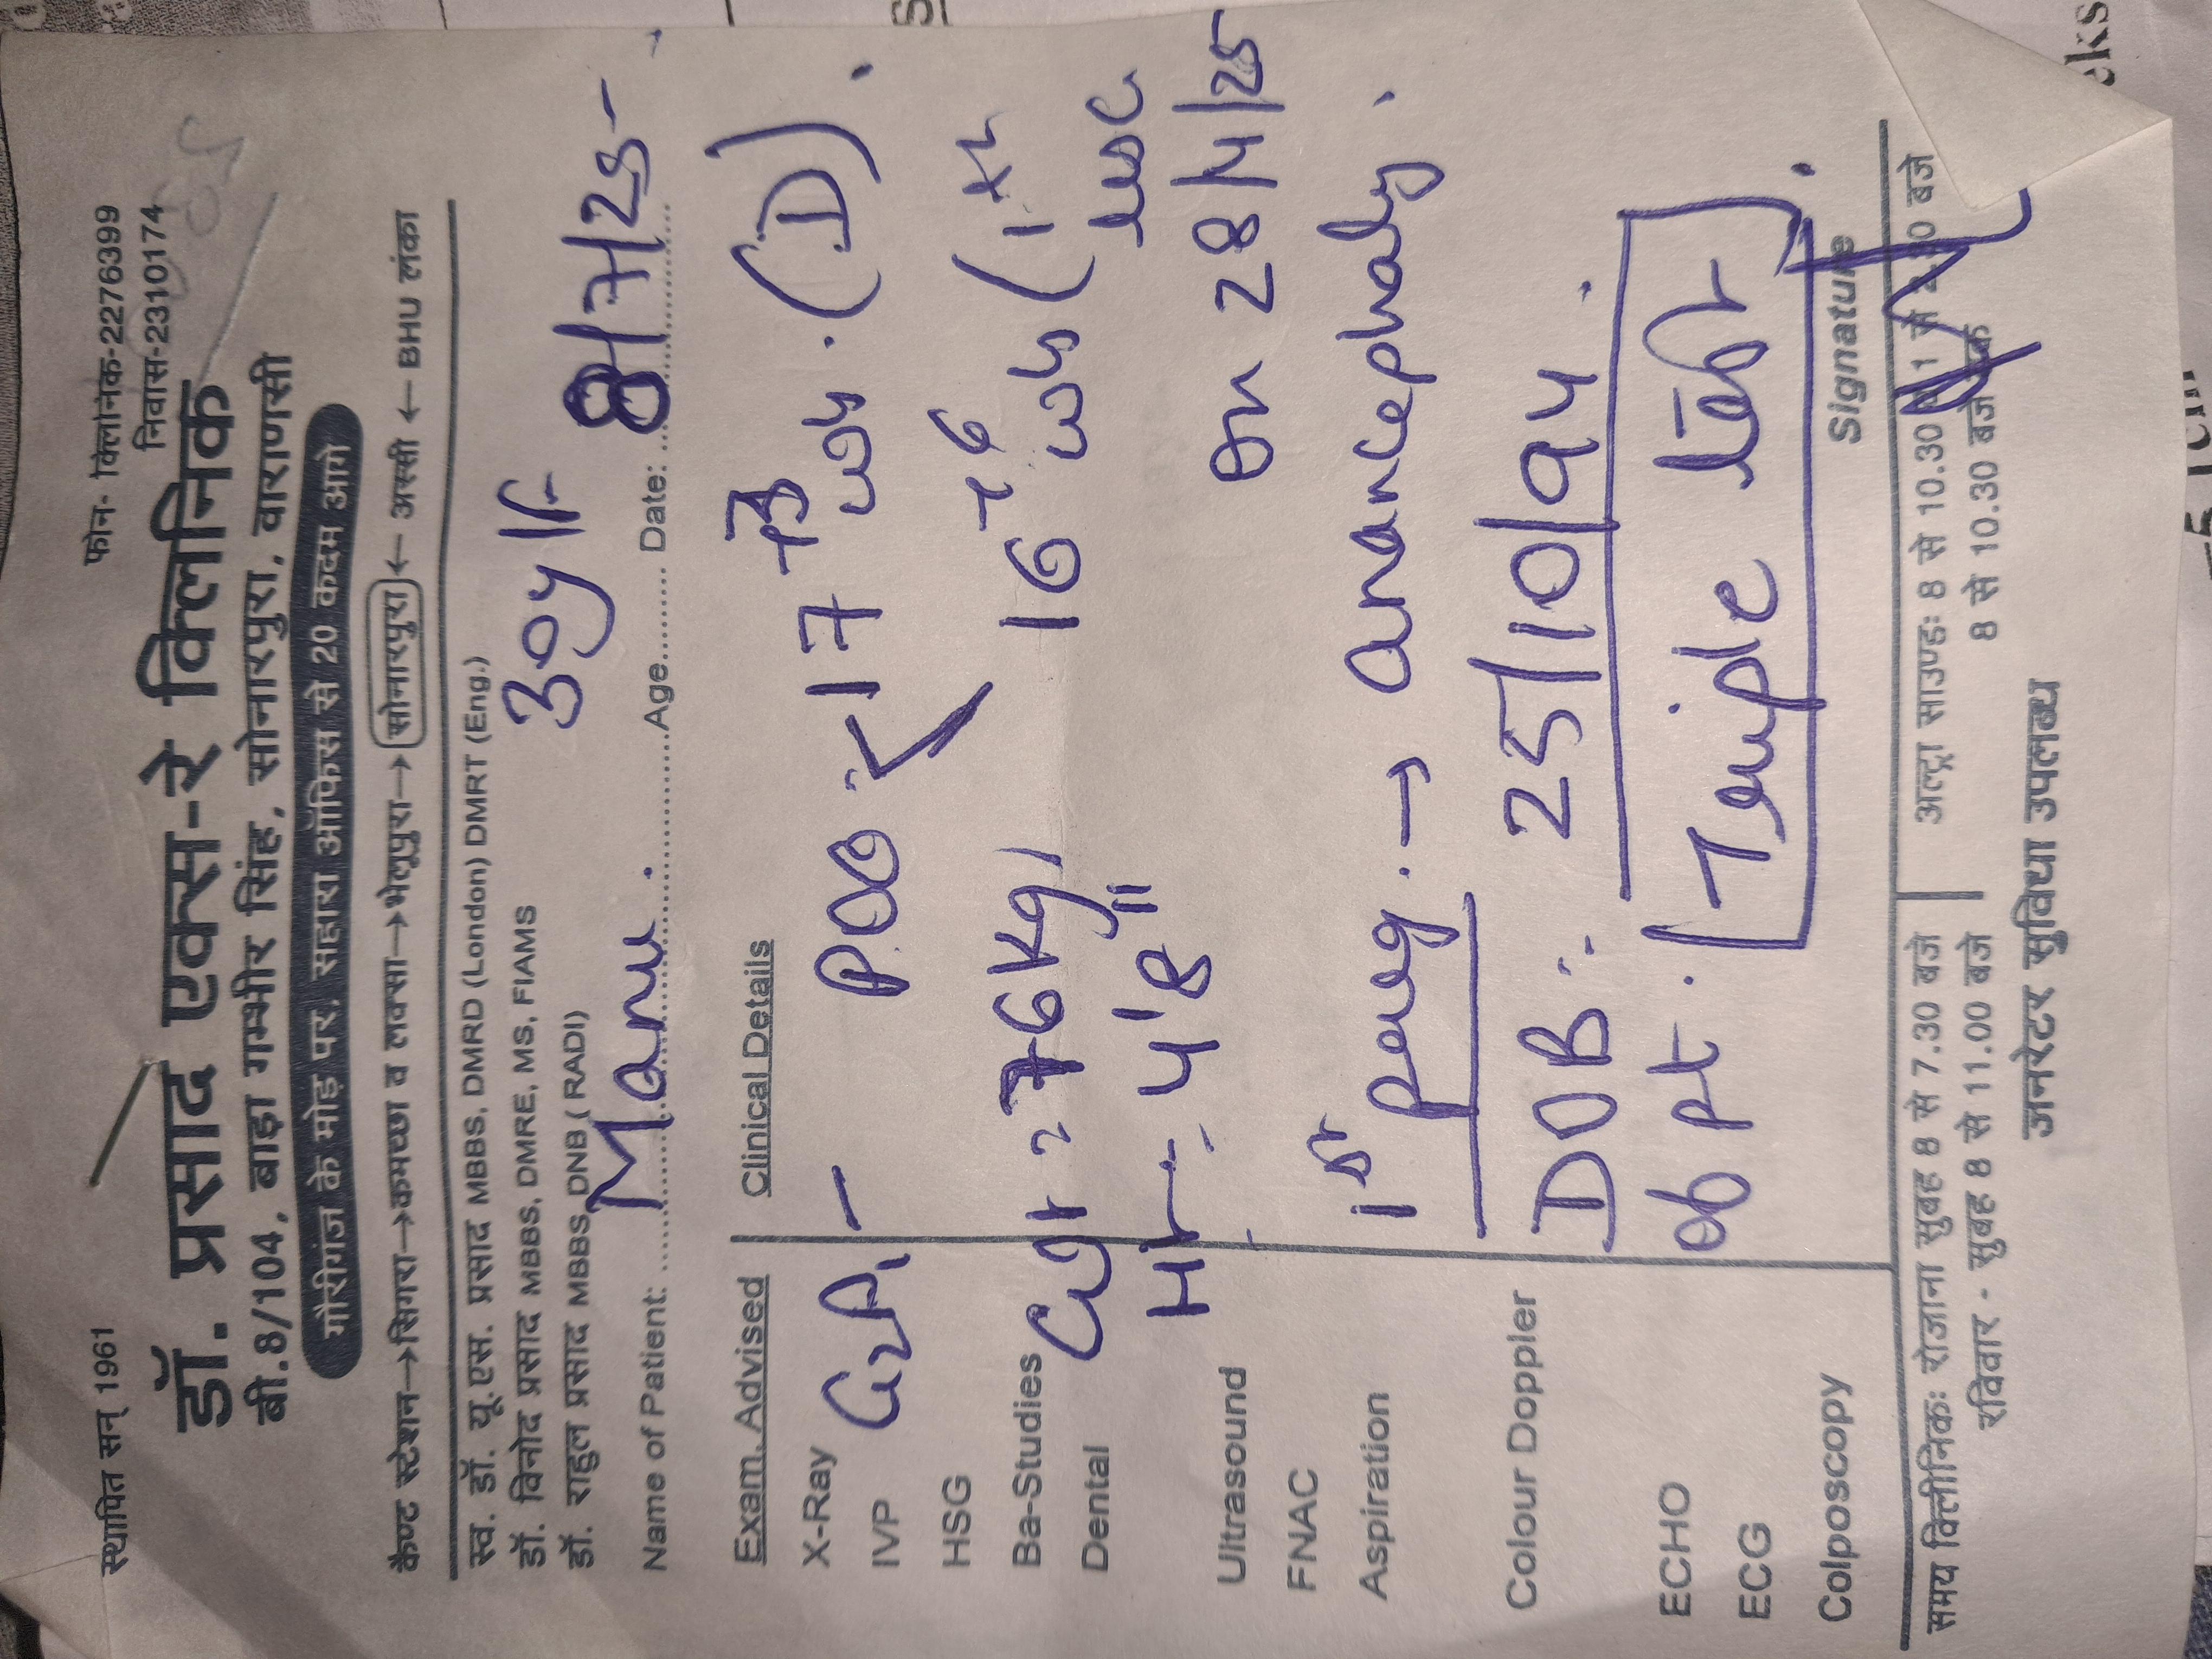 स्थापित सन् 1961
फोन- क्लिनिक-2276399
निवास-2310174
डॉ. प्रसाद एक्स-रे क्लिनिक
बी.8/104, बाड़ा गम्भीर सिंह, सोनारपुरा, वाराणसी
गौरीगंज के मोड़ पर, सहारा ऑफिस से 20 कदम आगे
कैण्ट स्टेशन→सिगरा→कमच्छा व लक्सा→भेलूपुरा→सोनारपुरा← अस्सी ← BHU लंका
स्व. डॉ. यू.एस. प्रसाद MBBS, DMRD (London) DMRT (Eng.)
डॉ. विनोद प्रसाद MBBS, DMRE, MS, FIAMS
डॉ. राहुल प्रसाद MBBS, DNB ( RADI)
Name of Patient: Manu. Age 30y/F Date: 8/7/25
Exam. Advised
Clinical Details
X-Ray
IVP
HSG
Ba-Studies
Dental
Ultrasound
FNAC
Aspiration
Colour Doppler
ECHO
ECG
Colposcopy
POG: 17+3 wks. (D).
16+6 wks
Wt = 76 Kg
Ht = 4'8"
on 28/4/25
1st Preg. → anancephaly.
DOB: 25/10/94.
of Pt. Triple test.
Signature
समय क्लिीनिकः रोजाना सुबह 8 से 7.30 बजे
रविवार - सुबह 8 से 11.00 बजे
अल्ट्रा साउण्डः 8 से 10.30
8 से 10.30 बजे
जनरेटर सुविधा उपलब्ध
eks